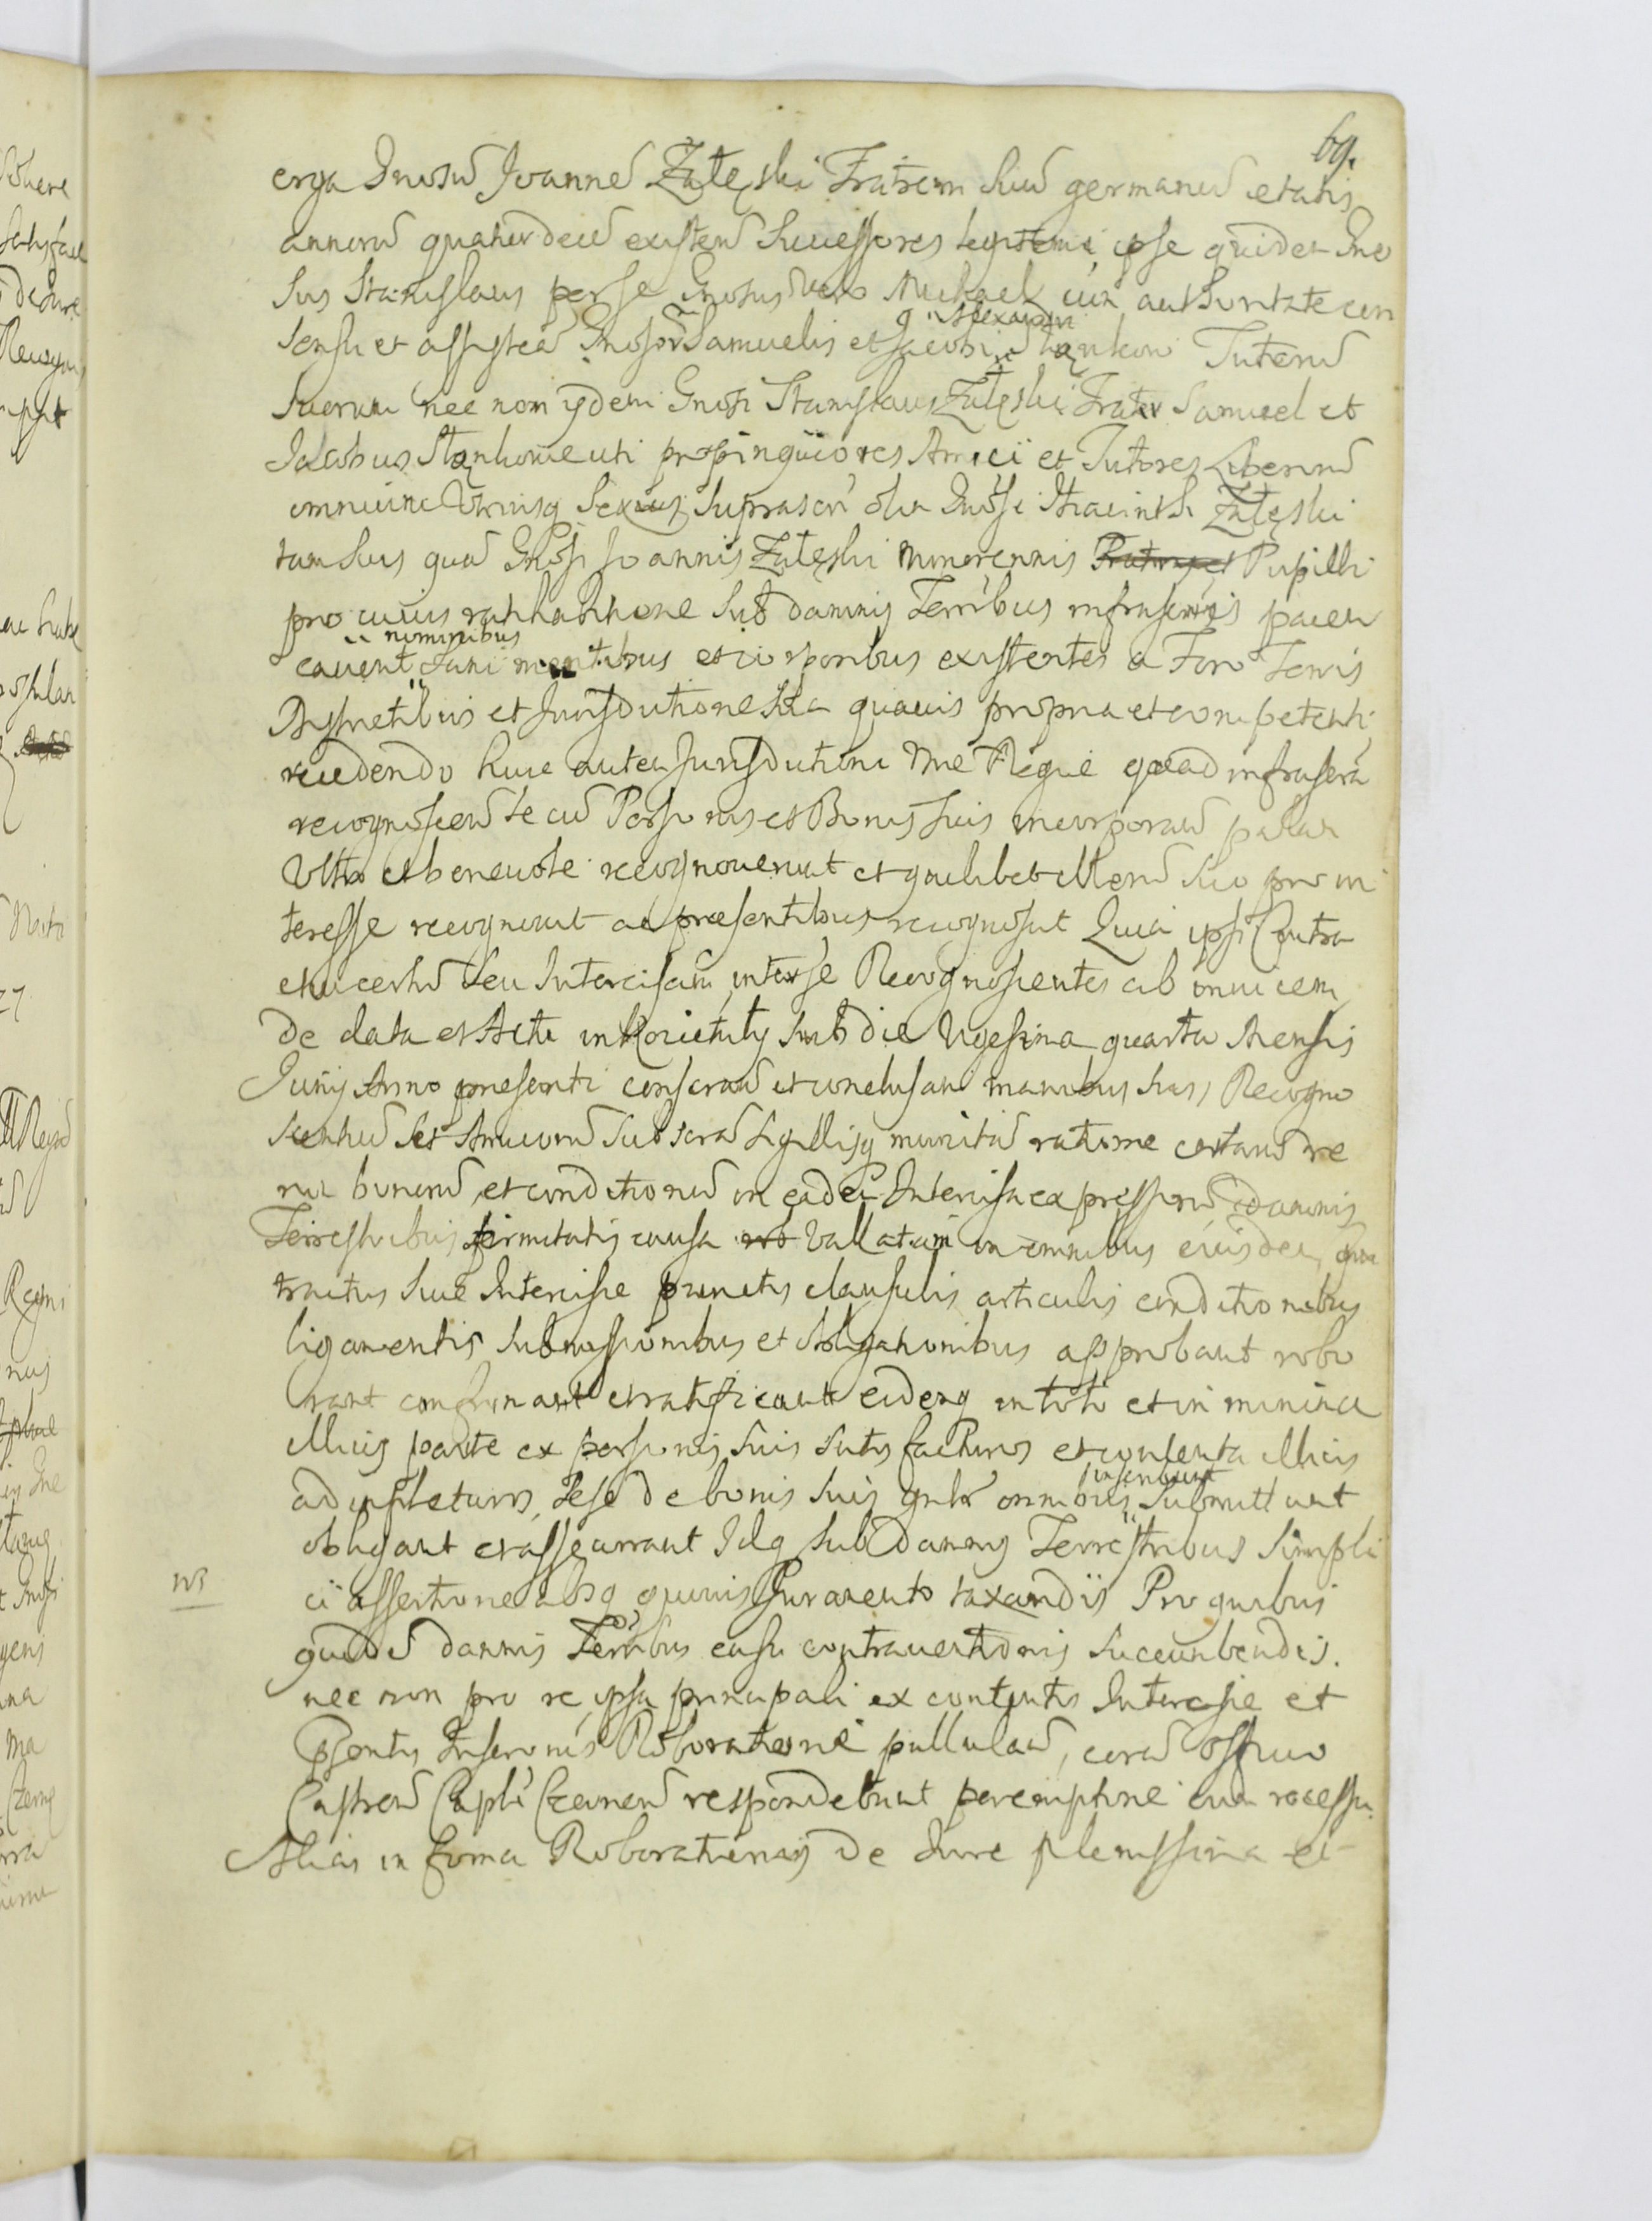 69.
erga Gnosū Joannē Załęski Fratrem Suū germanū etatis
annorū quatuordecē existenē Successores legitimi, ipse quidē Gno
sus Stanislaus per se Gnosus vero Michael cum authoritate con
sensu et assisteā Gnosorū Samuelis et Jacobi Alexandri Stąnkow Tutorū
Suorum nec non ydem Gnosi Stanislaus Załęski Frater Samuel et
Jacobus Stąnkowie uti propinquiores Amici et Tutores Liberorū
omnium Utriusq Sexus Suprascri olim Gnosi Hiacinthi Załęski
tam Suis quā Gnosi Joannis Załęski minorennis Pupilli
pro cuius ratihabitione Sub damnis Terribus infrascriptis
cavent nominibus Sani mentibus et corporibus existentes a Foro Terris
Districtibus et Jurisdictione Sua quavis propria et competenti
recedendo huic autem Jurisdictioni quoad infrascra
recognoscenē Se cū Personis et Bonis Suis incorporanē palam
Ultro et benevole recognoverunt et quilibet illorū Suo pro in
teresse recognovit ac præsentibus recognoscunt Quia ipsi Contra
ctū certū Seu Intercisam inter se Recognoscentes ab invicem
De data et Actu in Sub die Vigesima quarta Mensis
Junij Anno presenti conscratā et conclusam manibus Suis Recogno
scentiū et Amicorū Subscratā Sigillisq munitā ratione certarū re
rū bonorū et conditionū in eadē Intercisa expressarū damnis
Terrestribus firmitatis causa Vallatam in omnibus eiusdem Con
tractus Sive Intercisæ punctis clausulis articulis conditionibus
ligamentis Submissionibus et obligationibus approbant robo
rant confirmant et ratificant eidemq in toto et in minima
illius parte ex personis Suis Satis facturos et contenta illius
adimpleturos, Sese de bonis Suis gnlr omnibus inscribunt Submittunt
obligant et assecurant Idq Sub Damnis Terrestribus Simpli
ci assertione absq quovis Juramento taxandis Pro quibus
quidē damnis Terribus casu contraventionis Succumbendis.
nec non pro re ipsa principali ex contentis Intercisæ et
psentis Inscronis Roborationē pullulaē, corā Officio
Castrenē respondebunt peremptorie cum recessu
Alias in forma Roborationis De Jure plenissima et